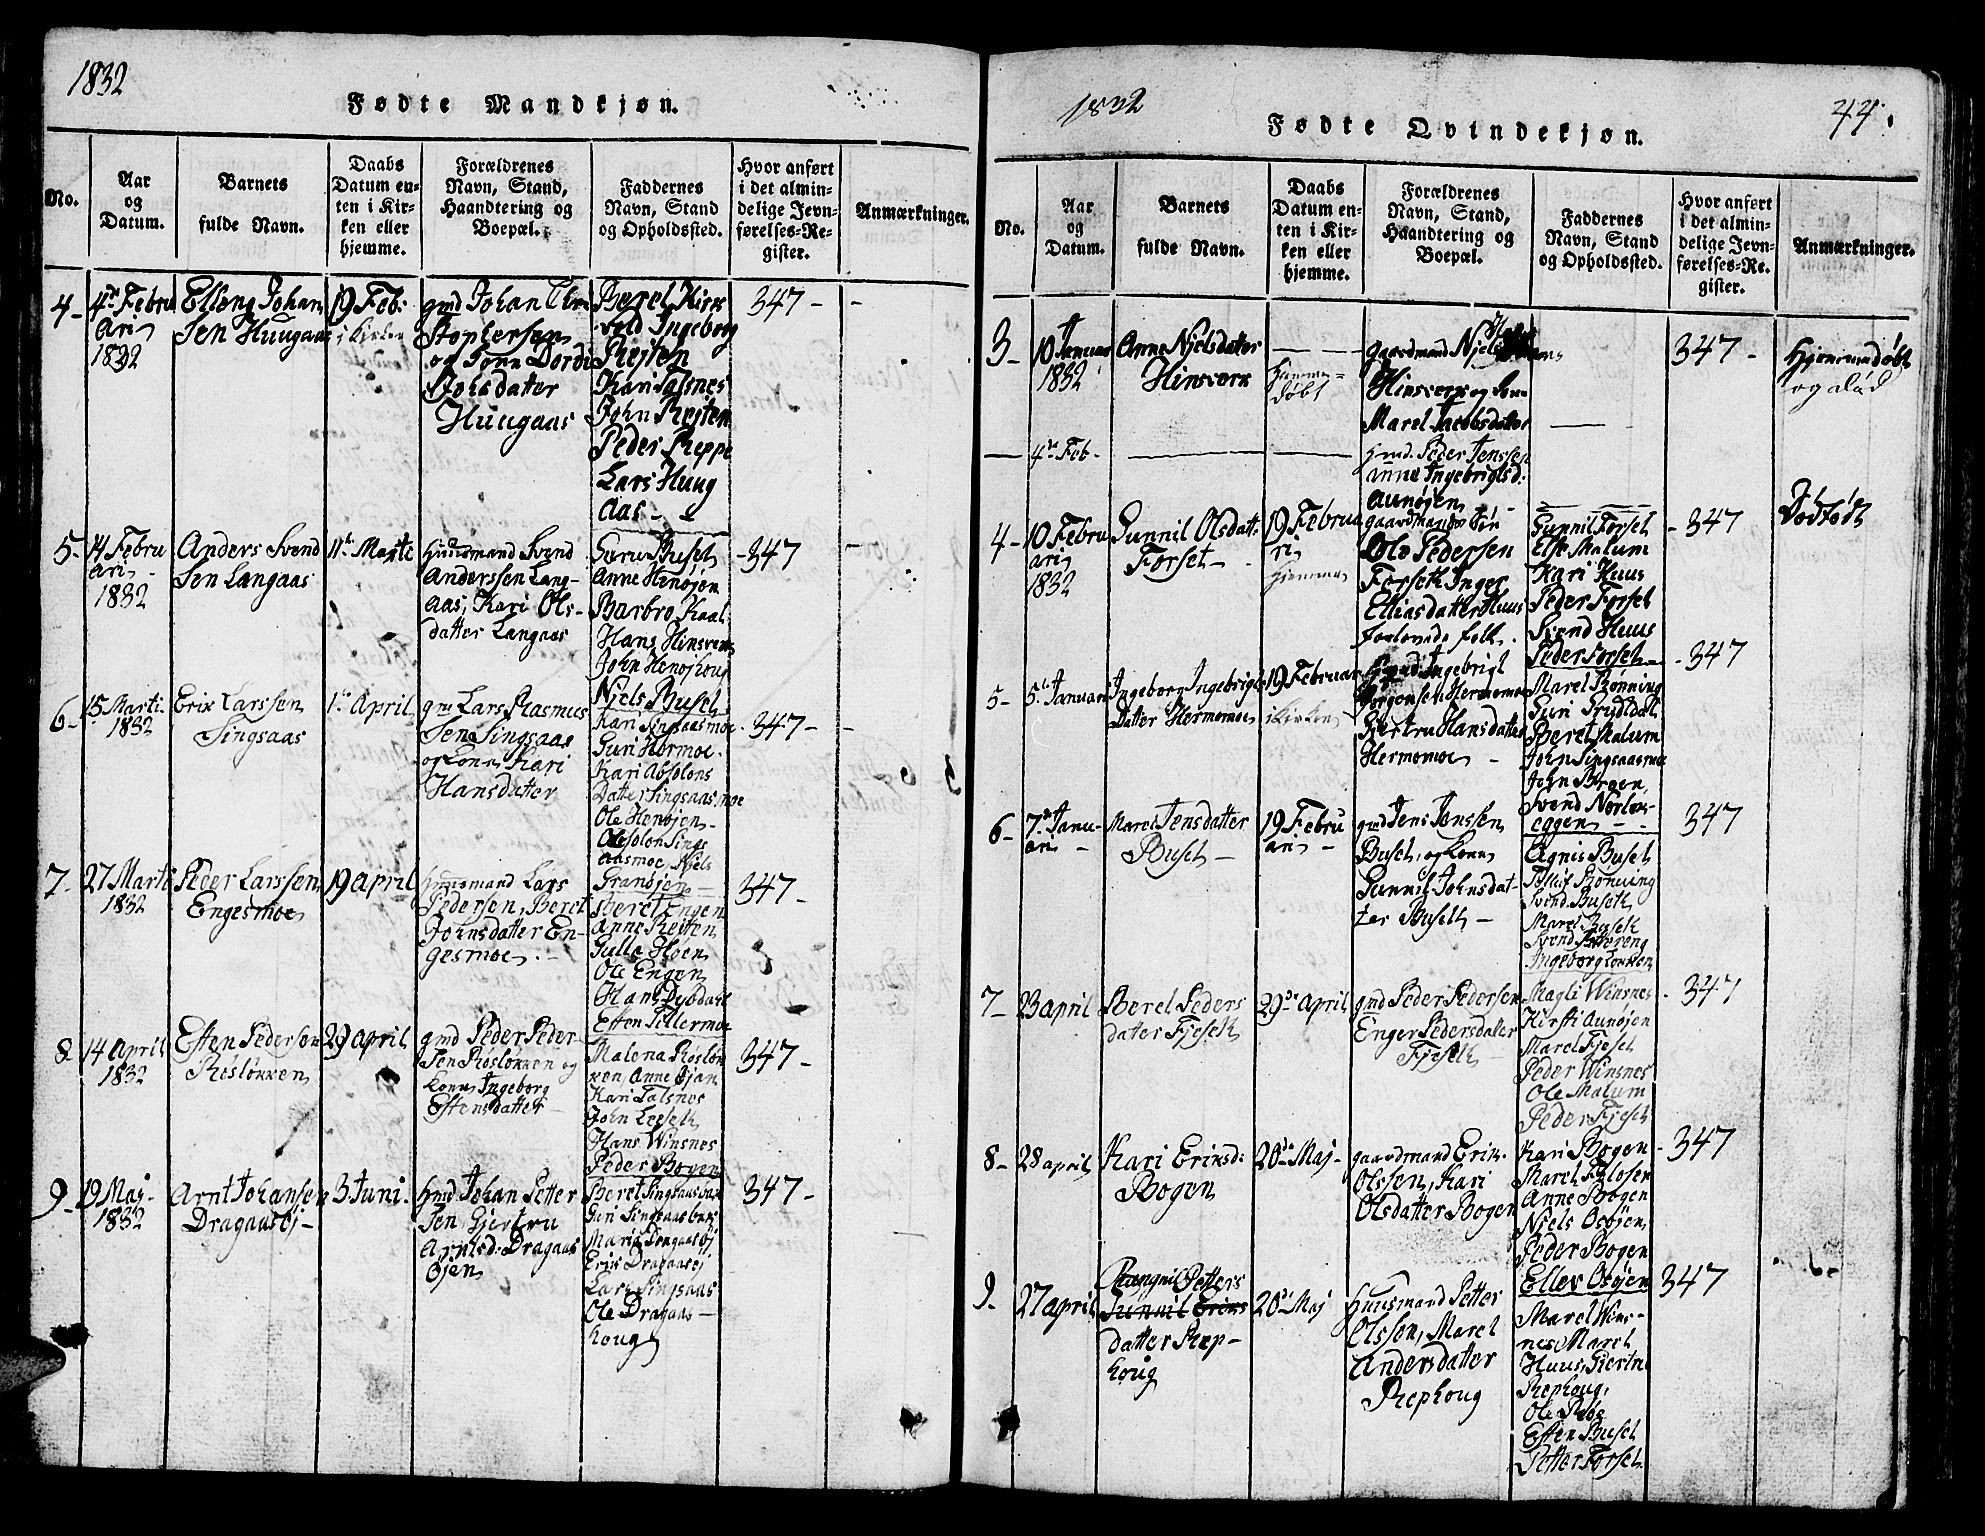 1832
Fødte Mandkjøn.
No.
Aar
og
Datum.
Barnets
fulde Navn.
Daabs
Datum en-
ten i Kir-
ken eller
hjemme.
Forældrenes
Navn, Stand,
Haandtering og
Boepæl.
Faddernes
Navn, Stand
og Opholdssted.
Hvor anført
i det almin-
delige Jevn-
førelses-Re-
gister.
Anmærkninger.
4-
4de Febru
ari
1832
Elleng Johan
Sen Huugaas
19 Feb:
i Kirken
gmd Johan Chri
Stophersen
og Konn Dordi
Johsdatter
Huugaas
Berel Kirk
vold Ingeborg
Rejten
Kari Talsnes
John Rejten
Peder Reppe
Lars Huug
Aas -
347 -
5-
14 Febru
ari -
1832
Anders Svend
Sen Langaas
11te Marti
Huusmand Svend
Anderssen Lang-
aas, Kari Ols-
datter Langaas
Guru Buset
Anne Henøjen
Barbro Kaal
Hans Hinsverk
John Henøjhoug
Niels Buset
-347 -
6-
15 Marti
1832
Erik Larssen
Singsaas
1te April
gmd Lars Rasmus
Sen Singsaas
og Konn Kari
Hansdatter
Kari Singsaasmoe
Guri Hermoe.
Kari Absolons
Datter Singsaasmoe
Ole Henøjen
Absolon Sings
aasmoe, Niels
Granøjen
347 -
7-
27 Marti
1832
Peder Larssen
Engesmoe
19 april
Huusmand Lars
Pedersen, Beret
Johnsdatter En-
gesmoe. -
Beret Engen
Anne Rejten
Gulle Hoen
Ole Engen
Hans Dybdahl
Esten Tellermoe
347 -
8-
14 April
1832
Esten Pedersen
Røsløkken
29 april
gmd Peder Peder-
Sen Røsløkken og
Konn Ingeborg
Estensdatter -
Malena Røsløk
ken, Anne Ojan
Kari Talsnes
John Leeseth
Hans Winsnes
Peder Bogen
347 -
9-
19 Maj -
1832
Arnt Johansen
Dragaasøj -
3 Juni.
Hmd Johan Petter
Sen Gjertru
Arntsd: Dragaas
øjen
Beret Singsaasbak
Guri Singsaasbak
Marit Dragaasøj
Erik Dragaasøj
Lars Singsaas
Ole Dragaas-
houg
347 -
1832
44.
Fødte Qvindekjøn.
No.
Aar
og
Datum.
Barnets
fulde Navn.
Daabs
Datum en-
ten i Kir-
ken eller
hjemme.
Forældrenes
Navn, Stand,
Haandtering og
Boepæl.
Faddernes
Navn, Stand
og Opholdssted.
Hvor anført
i det almin-
delige Jevn-
førelses-Re-
gister.
Anmærkninger.
3-
10 Januar
1832
Anne Njelsdatter
Hinsverk
Hjemme-
døbt
gaardmand Njels
Hinsverk og Kone
Marel Jacobsdatter
347 -
Hjemmedøbt
og død
4de Feb -
Hmd. Peder Jenssen
Anne Ingebrigtsd:
Aunøjen
Dødfødt
4-
10 Febru
ari
1832
Gunnil Olsdatt:
Forset -
19 Februa
ri
Hjemme
gaardmands Søn
Ole Pedersen
Forseth Inger
Elliasdatter Huus
forlovede folk.
Gunnil Forset
Else Malum
Kari Huus
Peder Forset
Svend Huus
Peder Forset
- 347
5-
5te Januari
Ingeborg Ingebrigts
Datter Hermomoe
19 Februar
i Kirken
Hmd Ingebrigt
Jorgensen Hermomoe
Gjertru Hansdatter
Hermomoe -
Marel Rønning
Guri Frydtdal
Beret Malum
John Singsaasmoe
John Broen
Svend Norløs-
eggen -
- 347
6-
7de Janu-
ari -
Marel Jensdatter
Buset -
19 Febru
ari -
gmd Jens Jonssen
Buset, og Konn
Gunnil Johnsdat-
ter Buseth -
Agnis Buset
Tollif Rønning
Svend Buseth
Marel Buseth
Svend Sættereng
Ingeborg Løkken
347
7-
23 april
Berel Peders
datter Fjeseth
29de april
gmd Peder Pedersen
Enger Pedersdatter
Fjeseth
Magli Winsnes
Kirsti Aunøjen
Marel Fjeset
Peder Winsnes
Ole Malum
Peder Fjeset
- 347
8-
28 april
Kari Eriksd:
Bogen
20de Maj -
gaardmand Erik
Olssen, Kari
Olsdatter Bogen
Kari Bogen
Marel Fløsen
Anne Bogen
Niels Osøjen
Peder Bogen
Ellev Osøjen
- 347
9-
27 april
Rangnil Petters
Gunnil Eriks
datter Rep-
houg
20de Maj
Huusmand Petter
Olsson, Marel
Andersdatter
Rephoug
Marel Wins-
nes Marel
Huus, Giertru
Rephoug,
Ole Røe
Esten Buset
Petter Forset
347